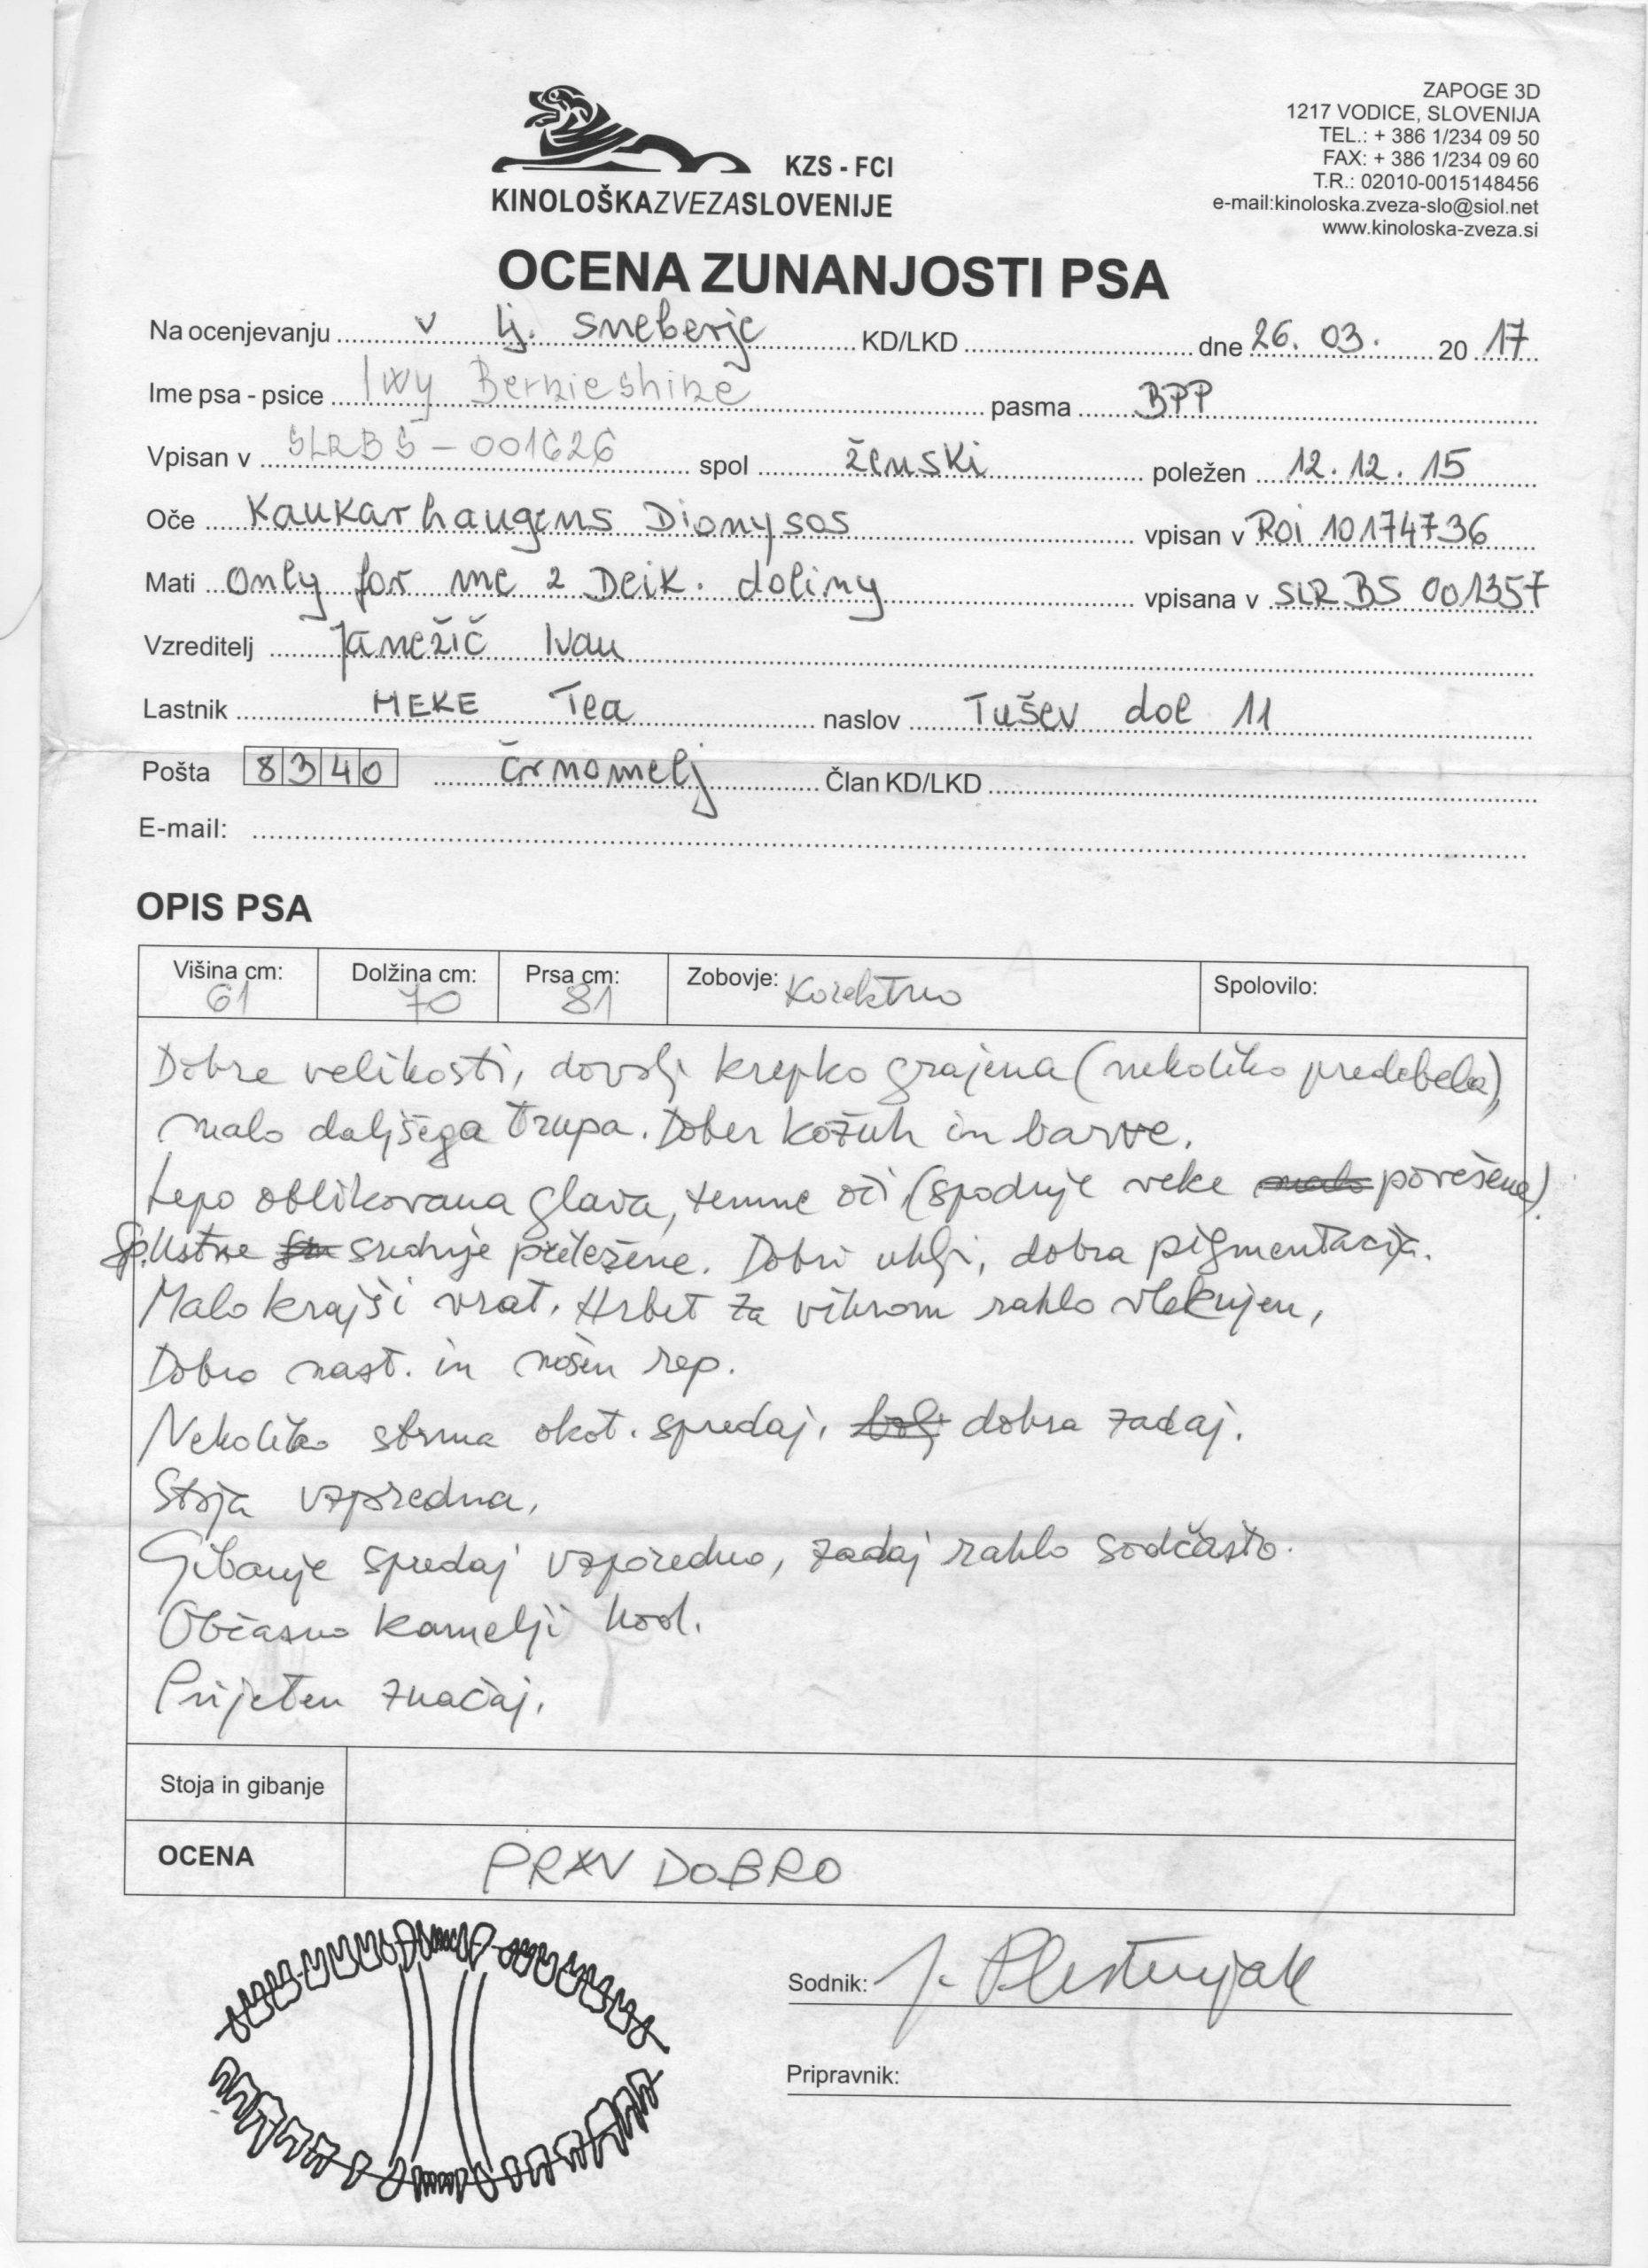 ZAPOGE 3D
1217 VODICE, SLOVENIJA
TEL.: + 386 1/234 09 50
FAX: + 386 1/234 09 60
T.R.: 02010-0015148456
e-mail:kinoloska.zveza-slo@siol.net
www.kinoloska-zveza.si
KZS - FCI
KINOLOŠKAZVEZASLOVENIJE
OCENA ZUNANJOSTI PSA
Na ocenjevanju v Lj. Sneberje KD/LKD dne 26. 03. 2017
Ime psa - psice Iwy Bernieshine pasma BPP
Vpisan v SLRBŠ - 001626 spol ženski poležen 12. 12. 15
Oče Kaukarhaugens Dionysos vpisan v Roi 10174736
Mati Only for me 2 Deik. doliny vpisana v SLR BS 001357
Vzreditelj Janežič Ivan
Lastnik MEKE Tea naslov Tušev dol 11
Pošta 8340 Črnomelj Član KD/LKD
E-mail:
OPIS PSA
Višina cm: 61 Dolžina cm: 70 Prsa cm: 81 Zobovje: Korektno Spolovilo:
Dobre velikosti, dovolj krepko grajena (nekoliko predebela),
malo daljšega trupa. Dober kožuh in barve.
Lepo oblikovana glava, temne oči (spodnje veke malo povešene).
Sp. Ustne srednje priležene. Dobri uhlji, dobra pigmentacija.
Malo krajši vrat. Hrbet za vihrom rahlo vleknjen,
Dobro nast. in nošen rep.
Nekoliko strma okot. spredaj, bolj dobra zadaj.
Stoja vzporedna,
Gibanje spredaj vzporedno, zadaj rahlo sodčasto.
Občasno kamelji hod.
Prijeten značaj.
Stoja in gibanje
OCENA PRAV DOBRO
Sodnik: J. Plestenjak
Pripravnik: